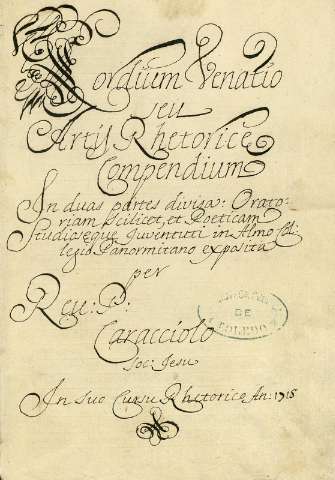 Cordium Venatio
seu
Artis Rhetoricę
Compendium
In duas partes divisa: Orato-
riam scilicet, et Poeticam
Studiosęque Juventuti in Almo Col-
legio Panormitano exposita
per
Reu: P:
Caracciolo
Soc: Jesu
In suo Cursu Rhetoricę An: 1715
DE
TOLEDO